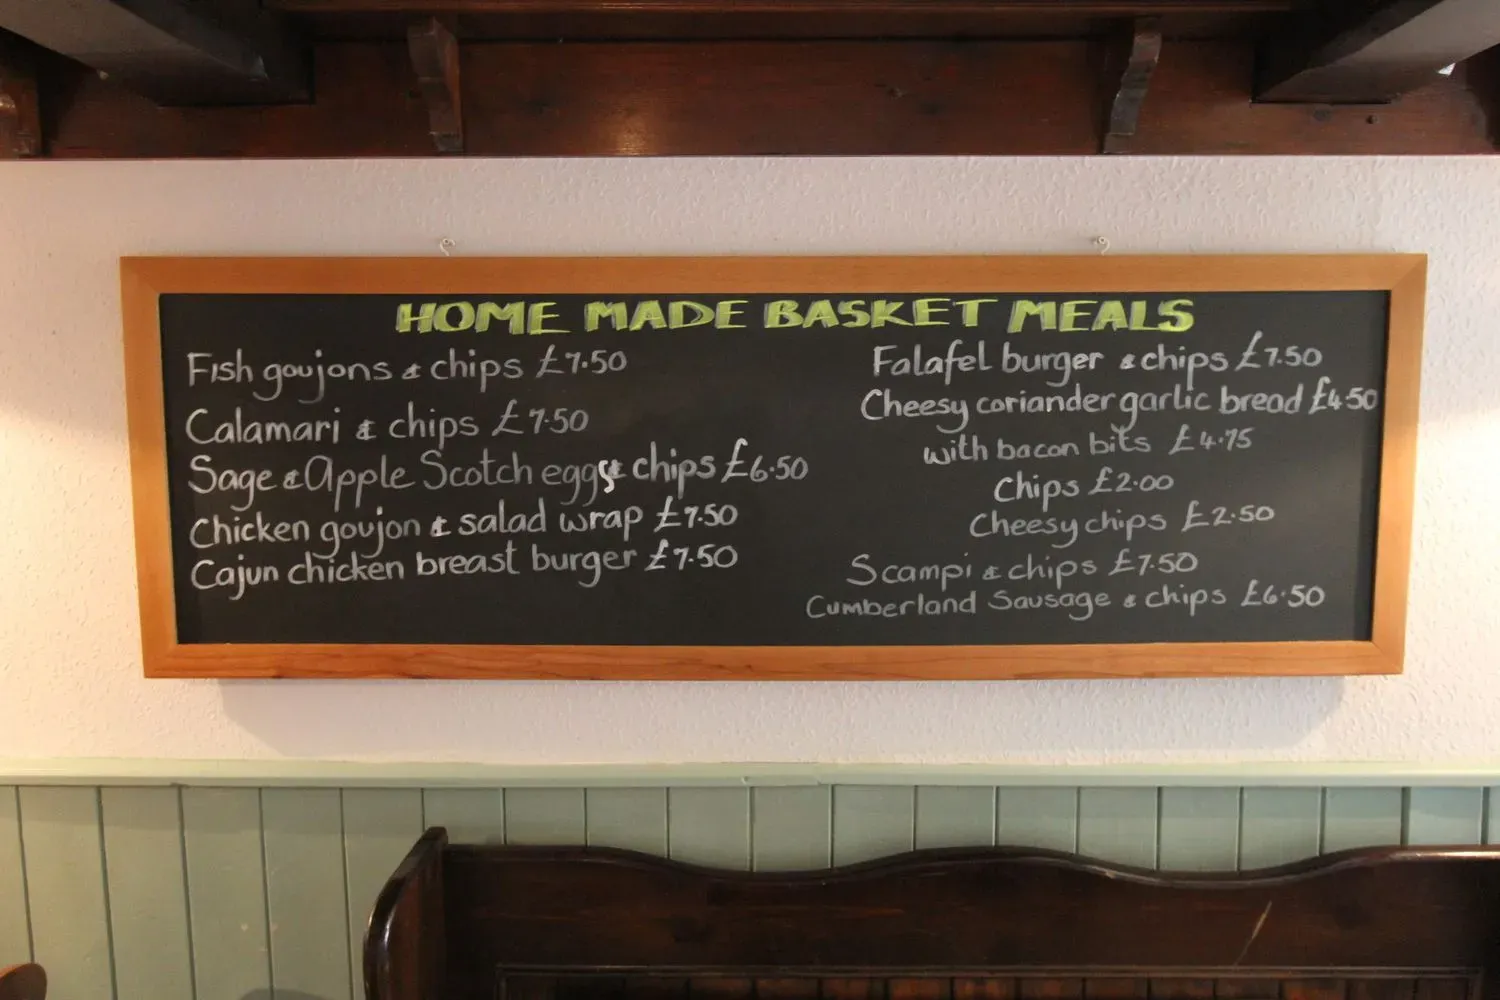 HOME MADE BASKET MEALS
Fish goujons & chips £7.50
Calamari & chips £7.50
Sage & Apple Scotch eggs & chips £6.50
Chicken goujon & salad wrap £7.50
Cajun chicken breast burger £7.50
Falafel burger & chips £7.50
Cheesy coriander garlic bread £4.50
with bacon bits £4.75
Chips £2.00
Cheesy chips £2.50
Scampi & chips £7.50
Cumberland Sausage & chips £6.50